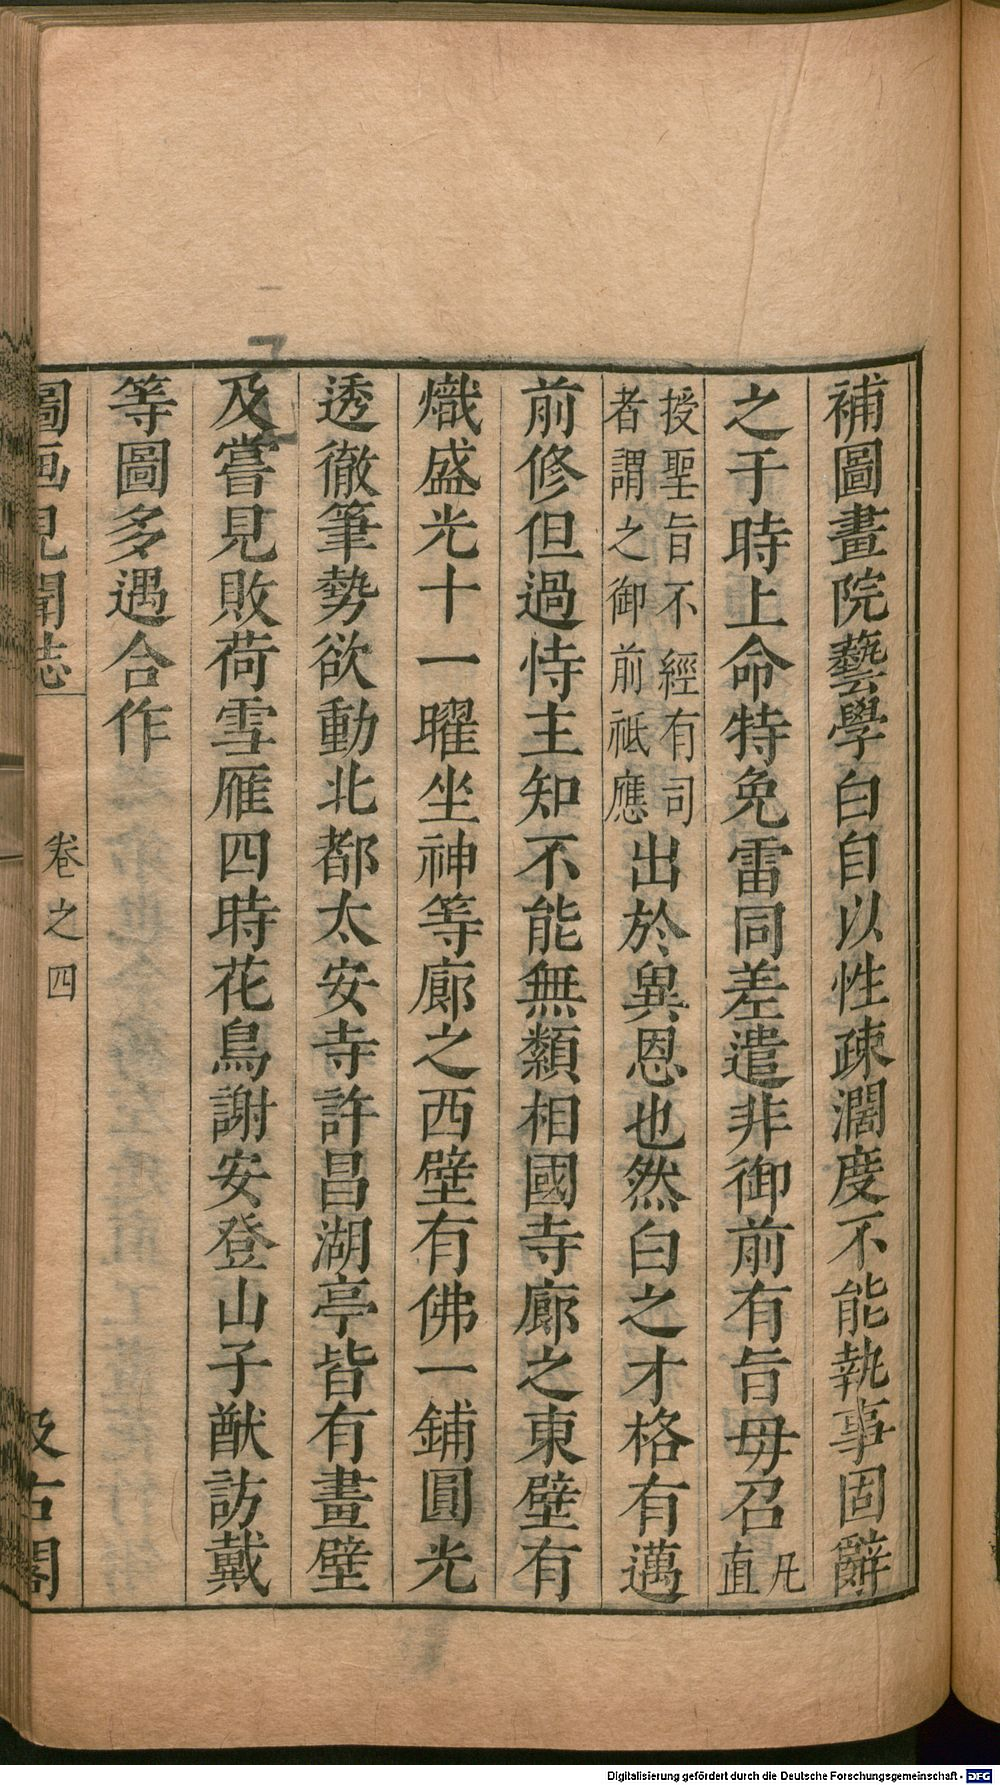 補圖畫院藝學白自以性疎濶度不能執事固辭
之于時上命特免雷同差遣非御前有旨毋召凡直
授聖旨不經有司者謂之御前祗應出於異恩也然白之才格有邁
前修但過恃主知不能無纇相國寺廊之東壁有
熾盛光十一曜坐神等廊之西壁有佛一鋪圓光
透徹筆勢欲動北都太安寺許昌湖亭皆有畫壁
及嘗見敗荷雪雁四時花鳥謝安登山子猷訪戴
等圖多遇合作
圖画見聞誌
卷之四
汲古閣
Digitalisierung gefördert durch die Deutsche Forschungsgemeinschaft - DFG